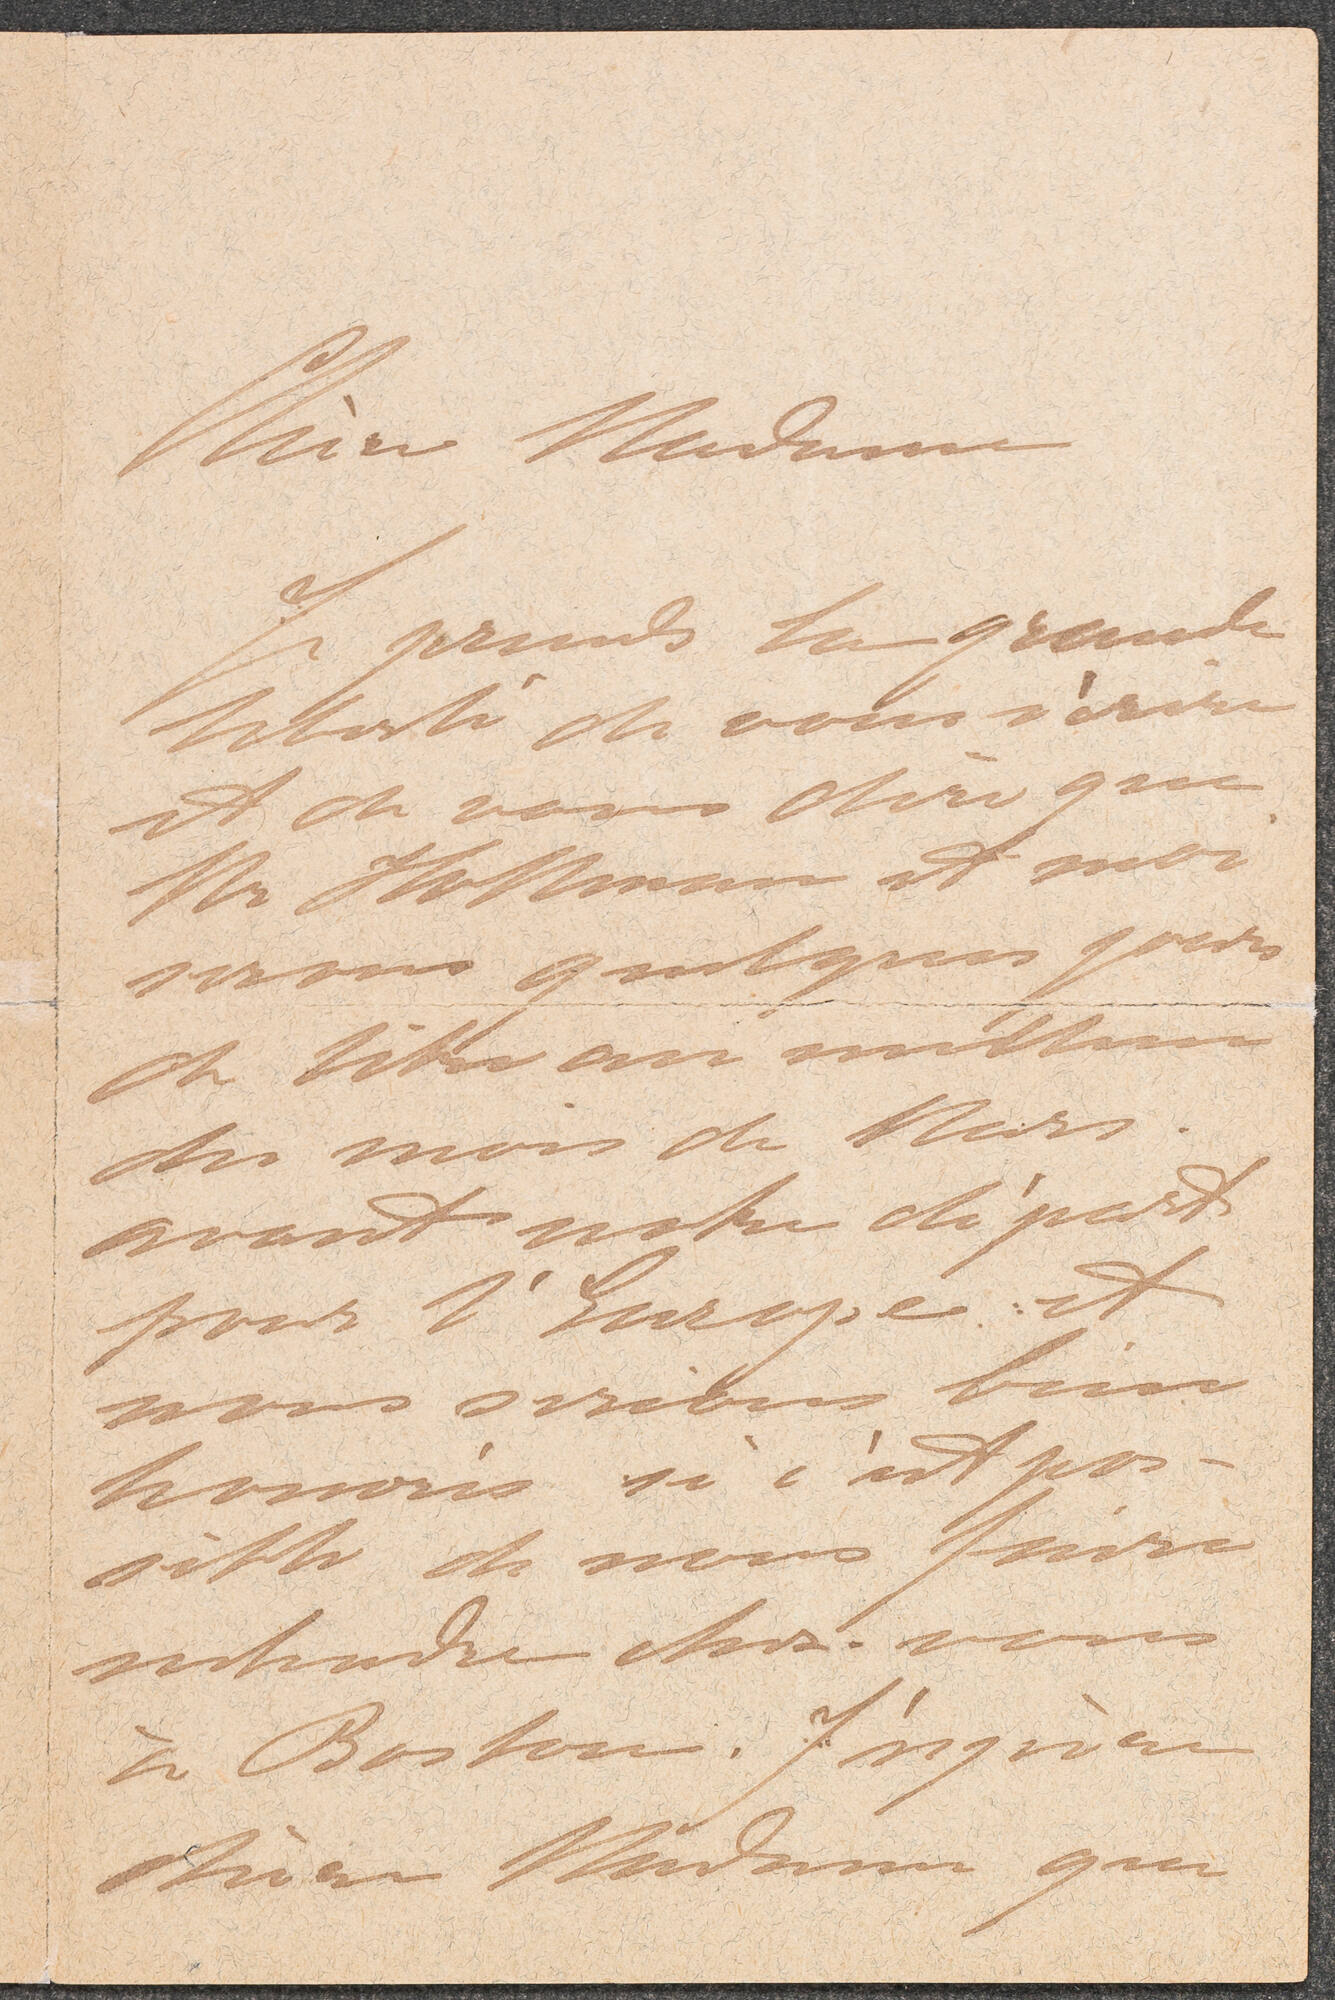 Chère Madame
Je prends la grande
liberté de vous écrire
et de vous dire que
Mr Hoffmann et moi
serons quelques jours
de libre au millieu
du mois de Mars.
avant notre départ
pour l'Europe. et
nous serions bien
honorés si c'est pos-
sible de nous faire
entendre chez vous
à Boston. J'éspère
chère Madame que